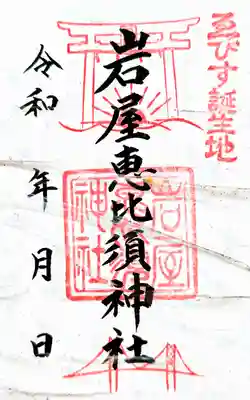 ゑびす誕生地
岩屋恵比須神社
岩屋恵比須神社
令和 年 月 日